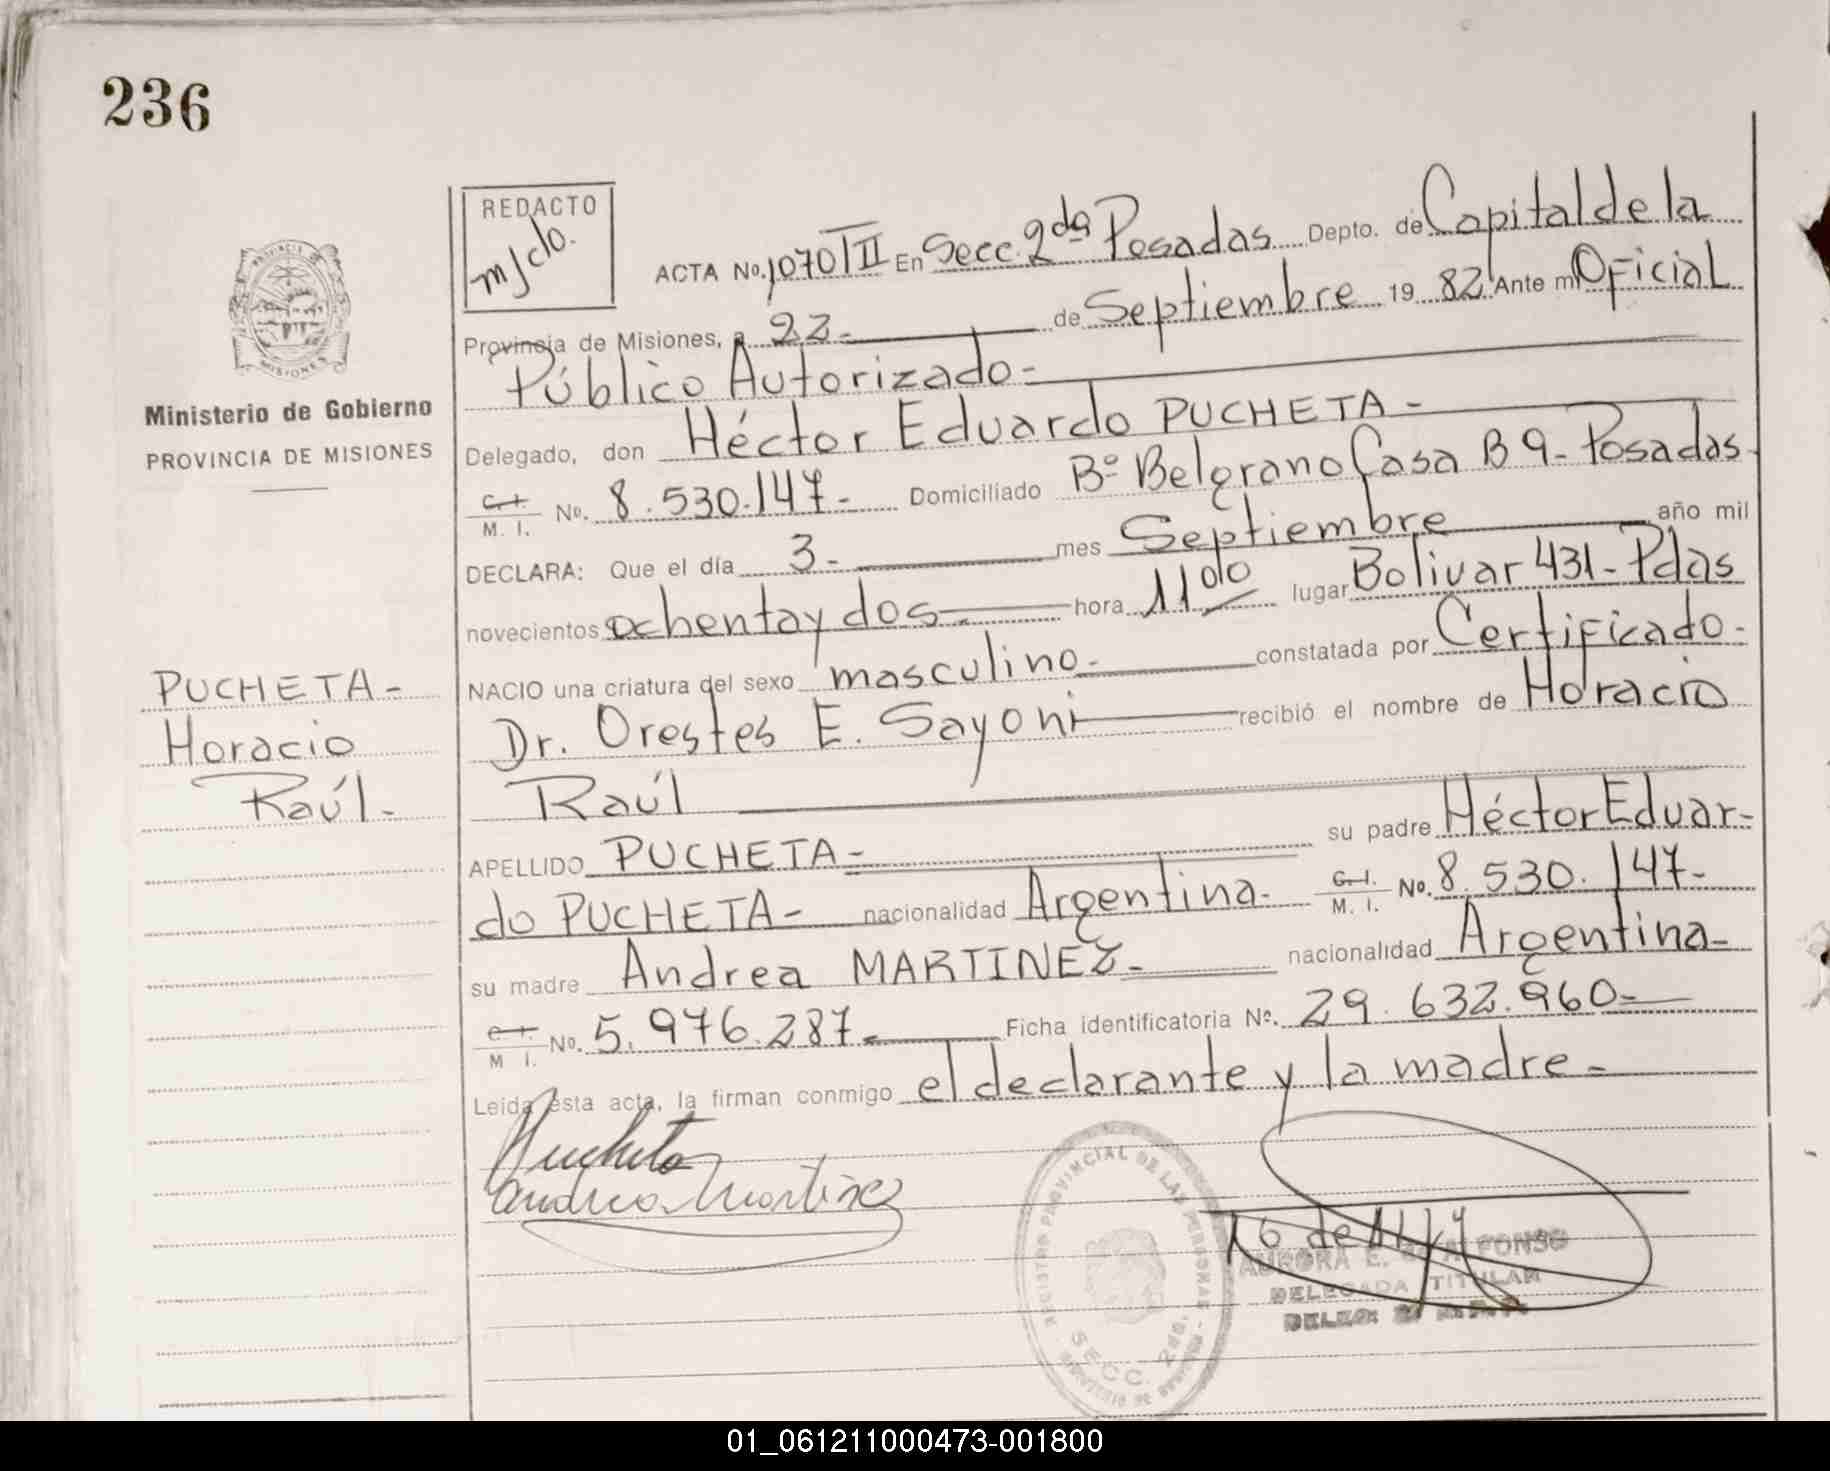 236
REDACTO
ACTA No. 1070 T II En Secc. 2da Posadas Depto. de Capital de la
Provincia de Misiones, a 22.- de Septiembre 1982 Ante mi Oficial
Público Autorizado-
Ministerio de Gobierno
PROVINCIA DE MISIONES
Delegado, don Héctor Eduardo PUCHETA-
C. I. M. I. No. 8.530.147- Domiciliado Bº Belgrano Casa B 9- Posadas-
DECLARA: Que el día 3- mes Septiembre año mil
novecientos ochenta y dos- hora 11 00 lugar Bolivar 431- Pdas
NACIO una criatura del sexo masculino- constatada por Certificado-
Dr. Orestes E. Sayoni recibió el nombre de Horacio
Raúl
PUCHETA-
Horacio
Raúl-
APELLIDO PUCHETA- su padre Héctor Eduar-
do PUCHETA- nacionalidad Argentina- C. I. M. I. No. 8.530.147-
su madre Andrea MARTINEZ- nacionalidad Argentina-
C. I. M. I. No. 5.976.287- Ficha identificatoria Nº. 29.632.960-
Leida esta acta, la firman conmigo el declarante y la madre-
Pucheta
Andrea Martinez
REGISTRO PROVINCIAL DE LAS PERSONAS
SECC. 2da
DELEGADA TITULAR
01_061211000473-001800